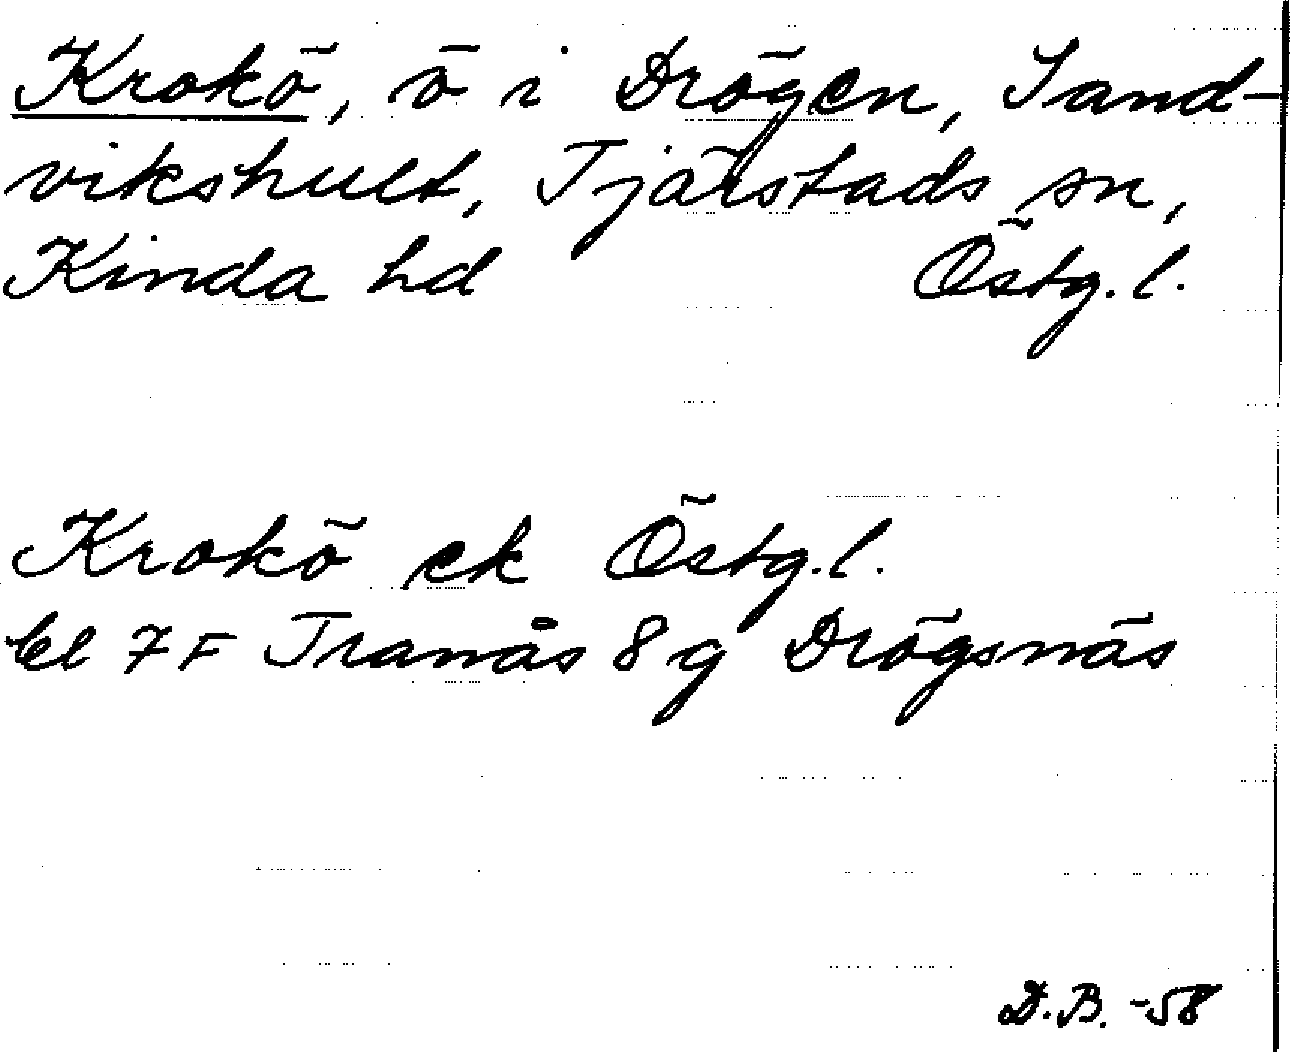 Krokö, ö i Drögen, Sand-
vikshult, Tjärstads sn,
Kinda hd Östg. l.
Krokö ek Östg. l.
bl 7F Tranås 8g Drögsnäs
D.B. -58